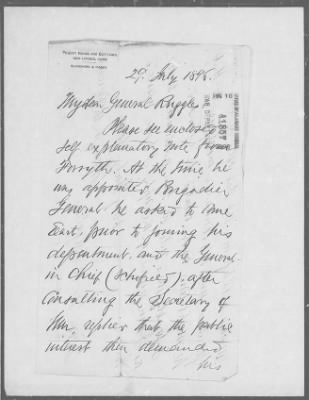 29th July 1896.
My dear General Ruggles
Please see enclosed
self explanatory note from
Forsyth. At the time he
was appointed Brigadier
General he asked to come
East, prior to joining his
department, and the General
in Chief (Schofield), after
consulting the Secretary of
War, replied that the public
interest then demanded
his